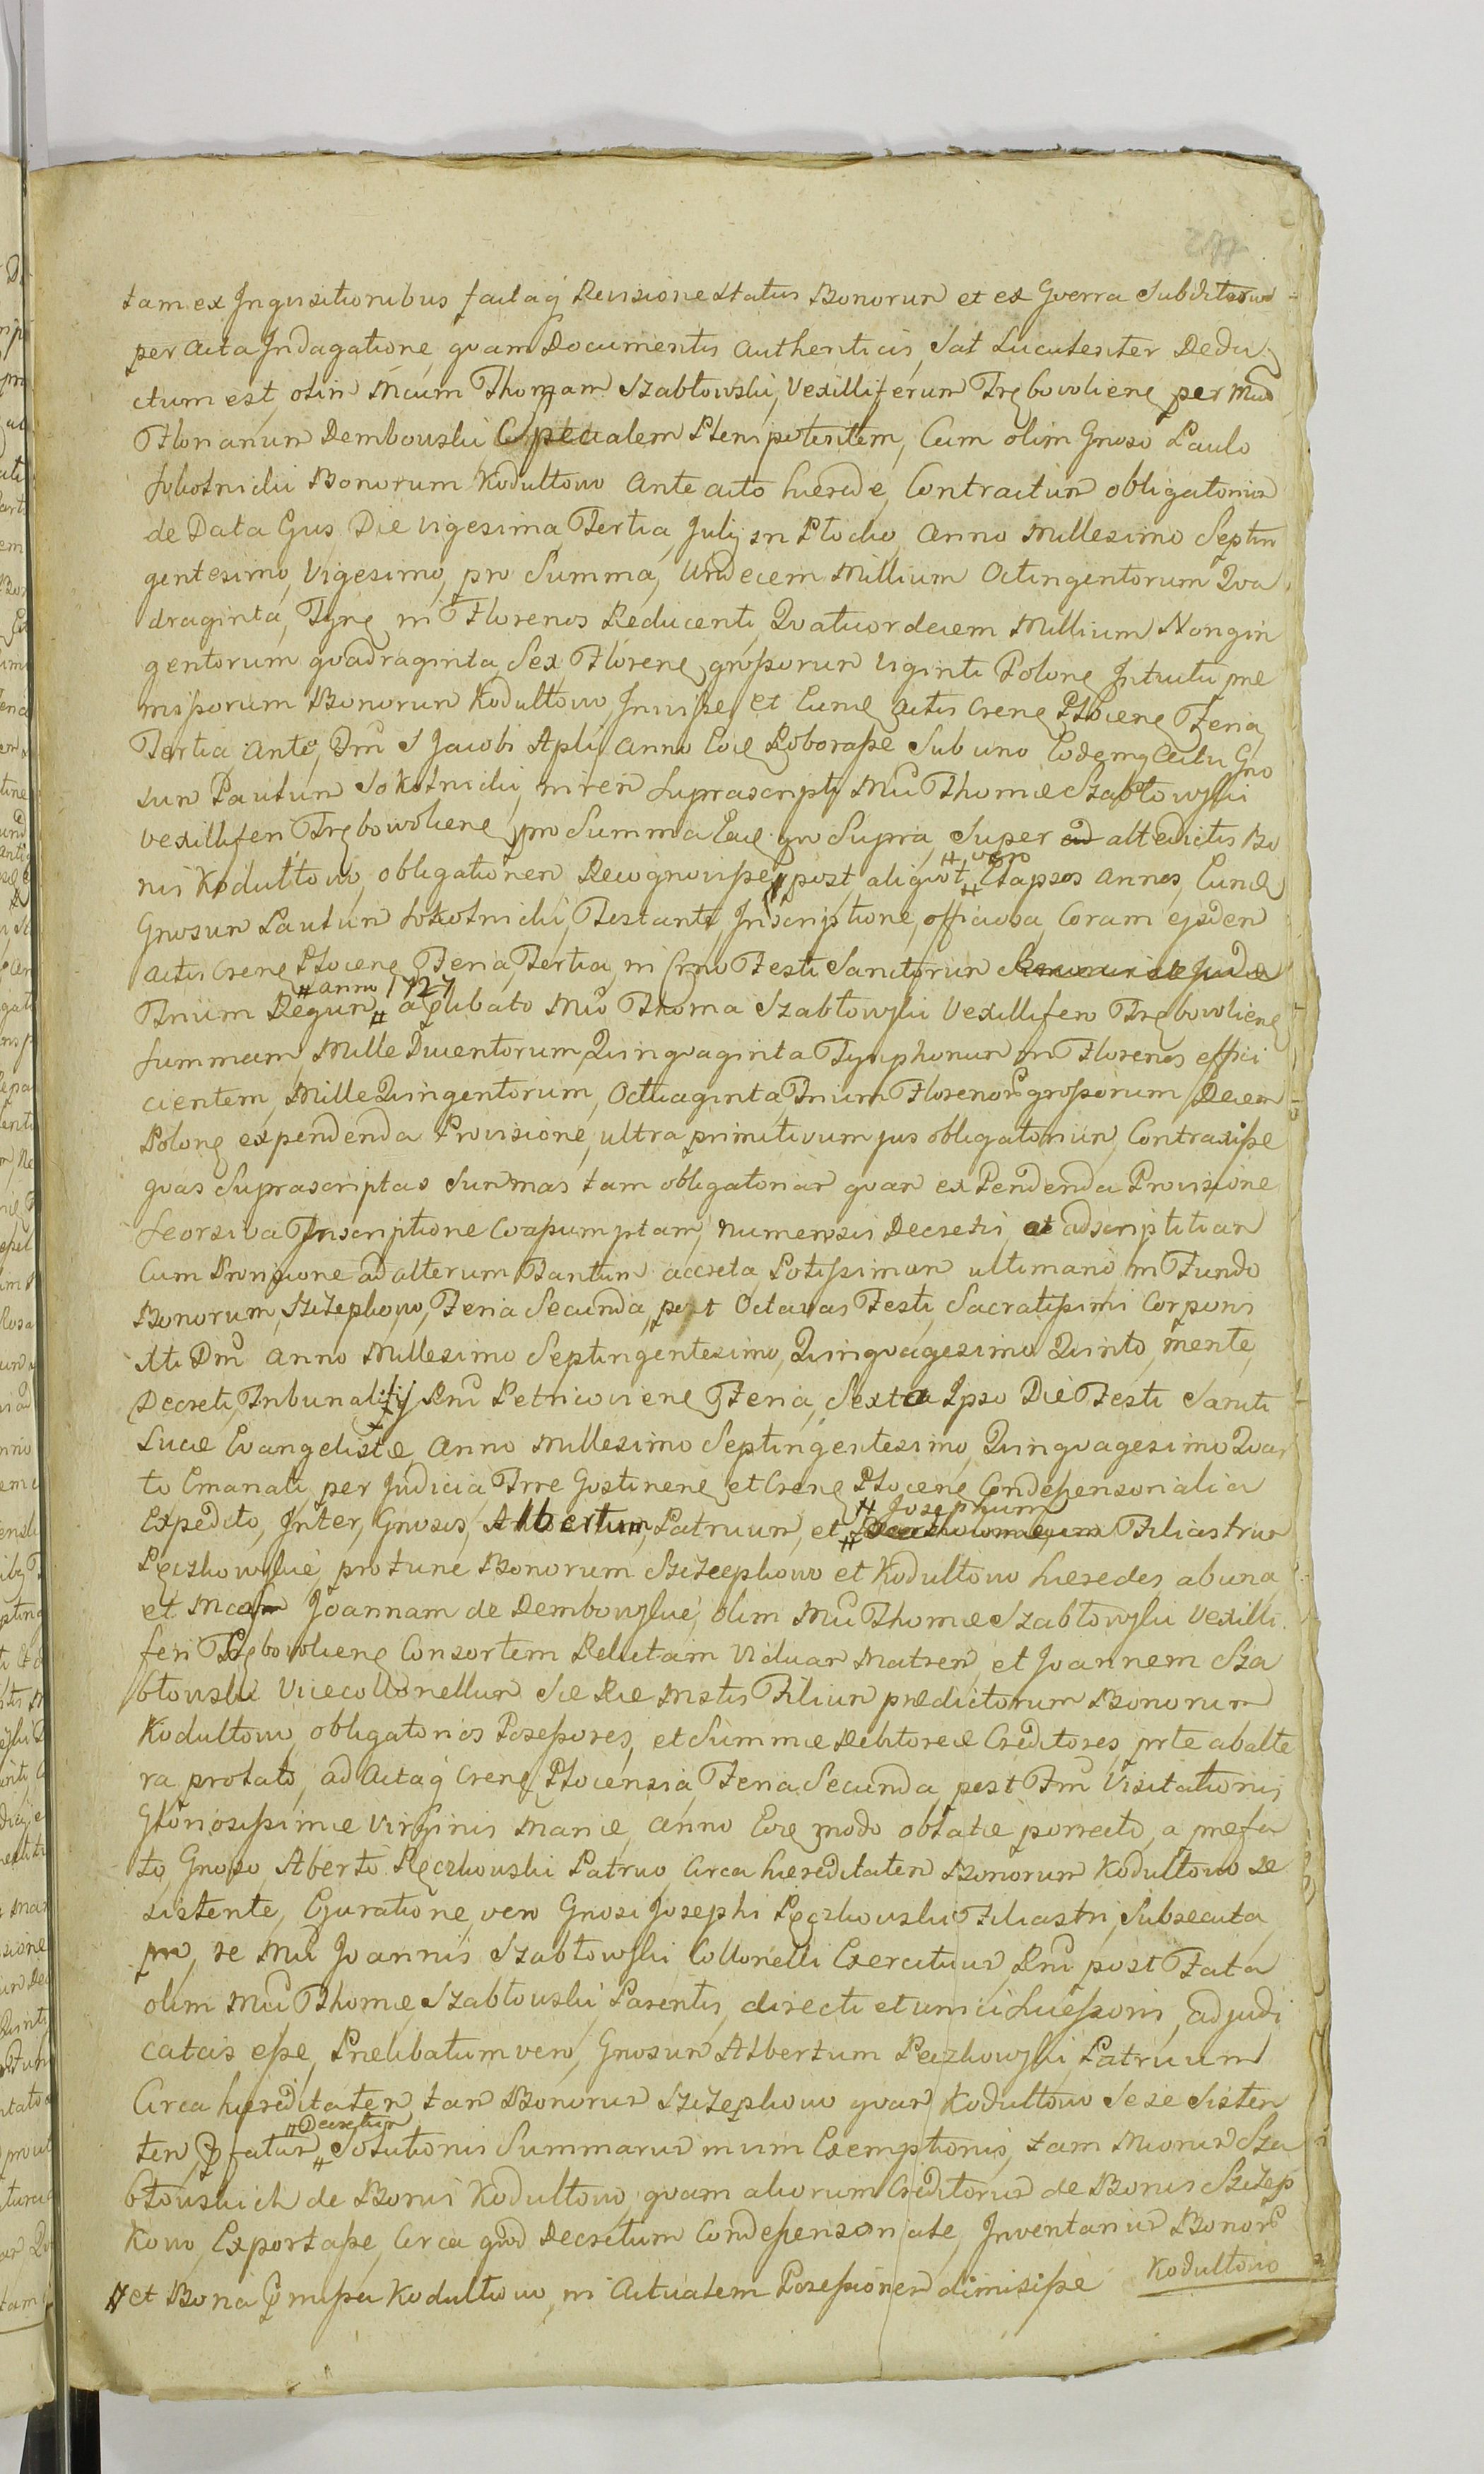 tam ex Inquisitionibus factaq Revisione Status Bonorum et ex Gverra Subditorum
per acta Indagatione quam Documentis Authenticis, Sat Luculenter Dedu
ctum est, olim Mcum Thomam Szabłowski, Vexilliferum Trębowliene per Mcum
Florianum Dembowski Specialem Plenipotentem, Cum olim Gnoso Paulo
Sokolnicki Bonorum Kodułtowo Ante acto hærede, Contractum obligatorium
de Data Ejus Die vigesima Tertia, Julij in Płocko, Anno Millesimo Septin
gentesimo, Vigesimo, pro Summa, Undecem Millium Octingentorum Qva
draginta, Tyne in Florenos Reducenti, Qvatuordecem Millium Nongin
gentorum quadraginta Sex Florene, grossorum viginti Polone Intuitu præ
missorum Bonorum Kodułtowo, Inivisse, et Eume Actis Crene Płocene Feria
Tertia Ante, Dm S Jacobi Apli, Anno Eoe Roborasse Sub uno Eodemq Actu Gno
sum Paulum Sokolnicki, in rem Suprascripti Mci Thomæ Szabłowski
Vexilliferi Trębowliene, pro Summa Eae qvo Supra, Super ad altedictis Bo
nis Kodułtowo, obligationem Recognovisse, post aliqvot # vero # Elapsos annos, Eunde
Gnosum Paulum Sokolnicki, Testante, Inscriptione, officiosa, Coram ejsdem
actis Crene Płocene Feria Tertia, in Crno Festi Sanctorum
Trium Regum # anno 1727 # a prælibato Mco Thoma Szabłowski Vexillifero Trębowliene
Summam Mille Ducentorum, Qvinqvaginta Tynphonum in Florenos effici
cientem, Mille Qvingentorum, Octuaginta Trium Florenorum grossorum Decem
Polone expendenda Provisione, ultra primitivum jus obligatorium, Contraxisse
qvas Suprascriptas Summas tam obligatoriam qvam ex Pendenda Provisione
Seorsiva Inscriptione Coassumptam, numerosis Decretis et adscriptitiam
Cum Provisione ad alterum Tantum accreta Potissimum ultimario in Fundo
Bonorum, Szczepkowo, Feria Secunda, post Octavas Festi, Sacratissimi Corporis
Xti Dni Anno Millesimo Septingentesimo, Qvinqvagesimo Qvinto, mente,
Decreti, Tribunalitij Rni Petricoviene Feria, Sexta Ipso Die Festi Sancti
Lucæ Evangelistæ, Anno Millesimo Septingentesimo, Qvinqvagesimo Qvar
to Emanati, per Judicia Trre Gostinene et Crene Płocene Condescensorialia
Expedito, Inter, Gnosos, Albertum, Patruum, et # Josephum # Filiastrum
Pęczkowskie, protunc Bonorum Szczepkowo et Kodułtowo hæredes, ab una
et Mcam Joannam de Dembowskie, olim Mci Thomæ Szabłowski Vexilli
feri Trębowliene Consortem Relictam Viduam Matrem, et Joannem Sza
błowski Vicecollonellum Sæ Ræ Mstis Filium prædictorum Bonorum
Kodułtowo, obligatorios Possessores, et Summæ Debitoreæ Creditores, prte ab alte
ra prolato, ad Actaq Crene Płocensia, Feria Secunda, post Fm Visitationis
Gloriosissimæ Virginis Mariæ, Anno Eoe modo oblatæ porrecto, a præfa
to, Gnoso, Alberto Pęczkowski Patruo, Circa hæreditatem Bonorum Kodułtowo se
sistente, Ejuratione, vero Gnosi Josephi Pęczkowski Filiastri, Subsecuta
re Mci Joannis Szabłowski Collonelli Exercituum, Rni post Fata
olim Mci Thomæ, Szabłowski, Parentis, directi et unici Suessoris, adjudi
catas esse, Prælibatum vero, Gnosum Albertum Pęczkowski, Patruum
Circa hæreditatem tam Bonorum Szczepkowo qvam Kodułtowo Sese Sisten
tem, Pfatum # Decretum # Solutionis Summarum mum Exemptionis, tam Mcorum Sza
błowskich de Bonis Kodułtowo, qvam aliorum Creditorum de Bonis Szczep
kowo, Exportasse, Circa qvod Decretum Condescensoriale, Inventarium Bonorum
# et Bona Pmissa Kodułtowo, in Actualem Possessionem dimisisse Kodułtowo